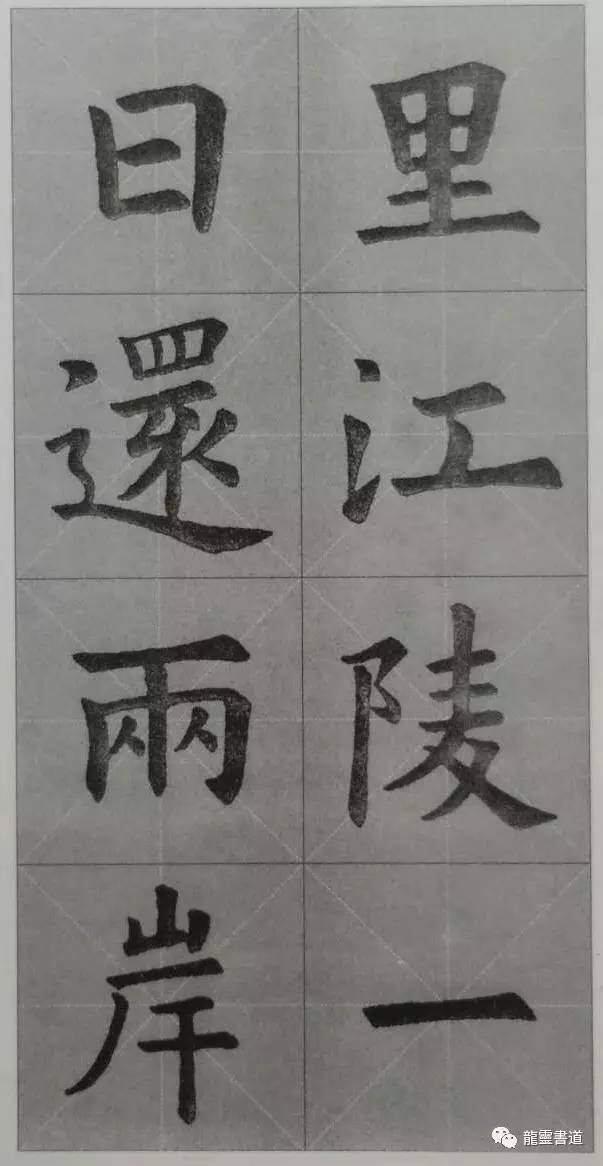 里江陵一
日還兩岸
龍靈書道